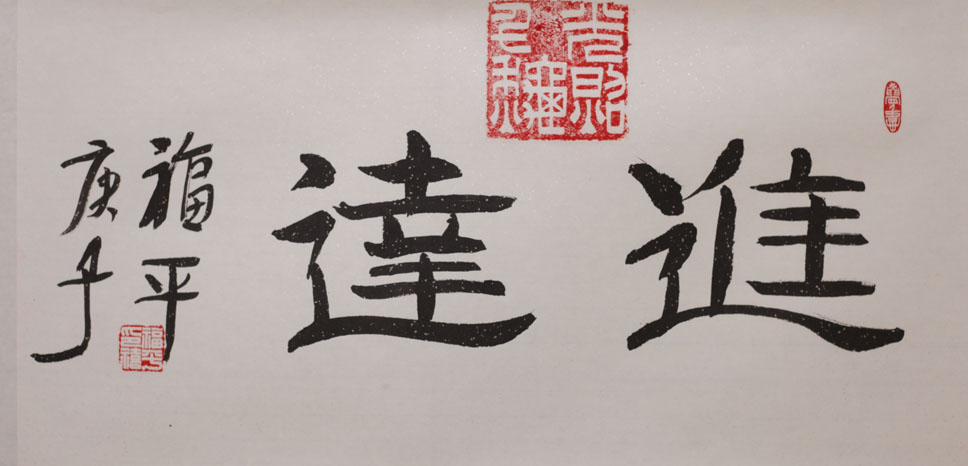 進達
福平
庚子